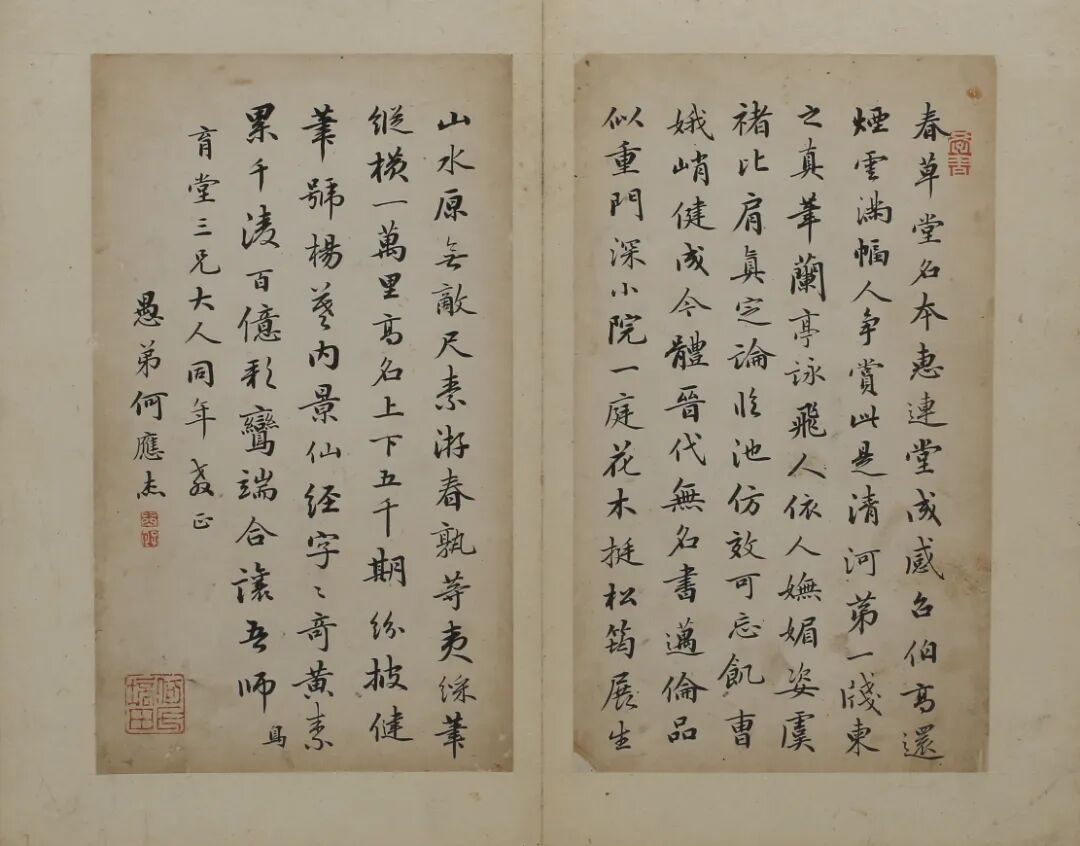 春草堂名本惠連堂成感召伯高還
煙雲滿幅人争賞此是清河第一牋東
之真筆蘭亭詠飛人依人嫵媚姿虞
褚比肩真定論臨池仿效可忘飢曹
娥峭健成今體晉代無名書邁倫品
似重門深小院一庭花木挺松筠展生
山水原無敵尺素游春孰等夷綵筆
縱橫一萬里高名上下五千期紛披健
筆號楊羲內景仙經字〻奇黃素
累千淩百億彩鸞端合讓吾師
育堂三兄大人同年 教正
愚弟何應杰